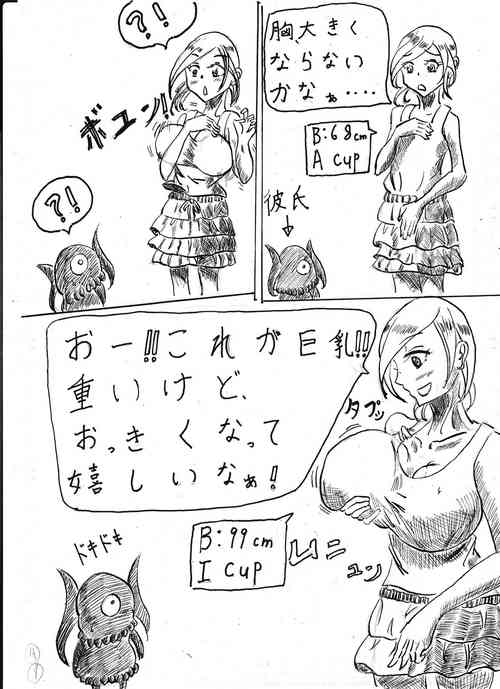 胸、大きく
ならない
かなぁ‥‥
B:68cm
A cup
彼氏
?!
ボユン!!
?!
おー!!これが巨乳!!
重いけど、
おっきくなって
嬉しいなぁ!
タプッ
B:99cm
I cup
ムニ
ュン
ドキドキ